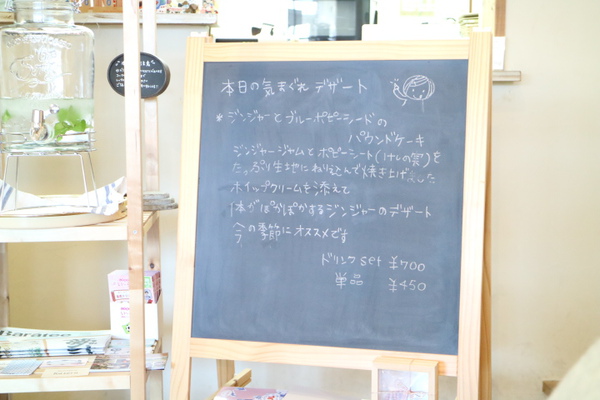 本日の気まぐれデザート
* ジンジャーとブルーポピーシードの
パウンドケーキ
ジンジャージャムとポピーシート(けしの実)を
たっぷり生地にねりこんで焼き上げました
ホイップクリームを添えて
体がぽかぽかするジンジャーのデザート
今の季節にオススメです
ドリンクset ¥700
単品 ¥450